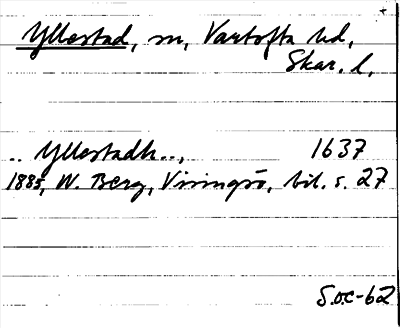 Yllestad, sn, Vartofta hd,
Skar. l,
.. Yllestadh.., 1637
1885, W. Berg, Visingsö, bil. s. 27
S.O.C-62